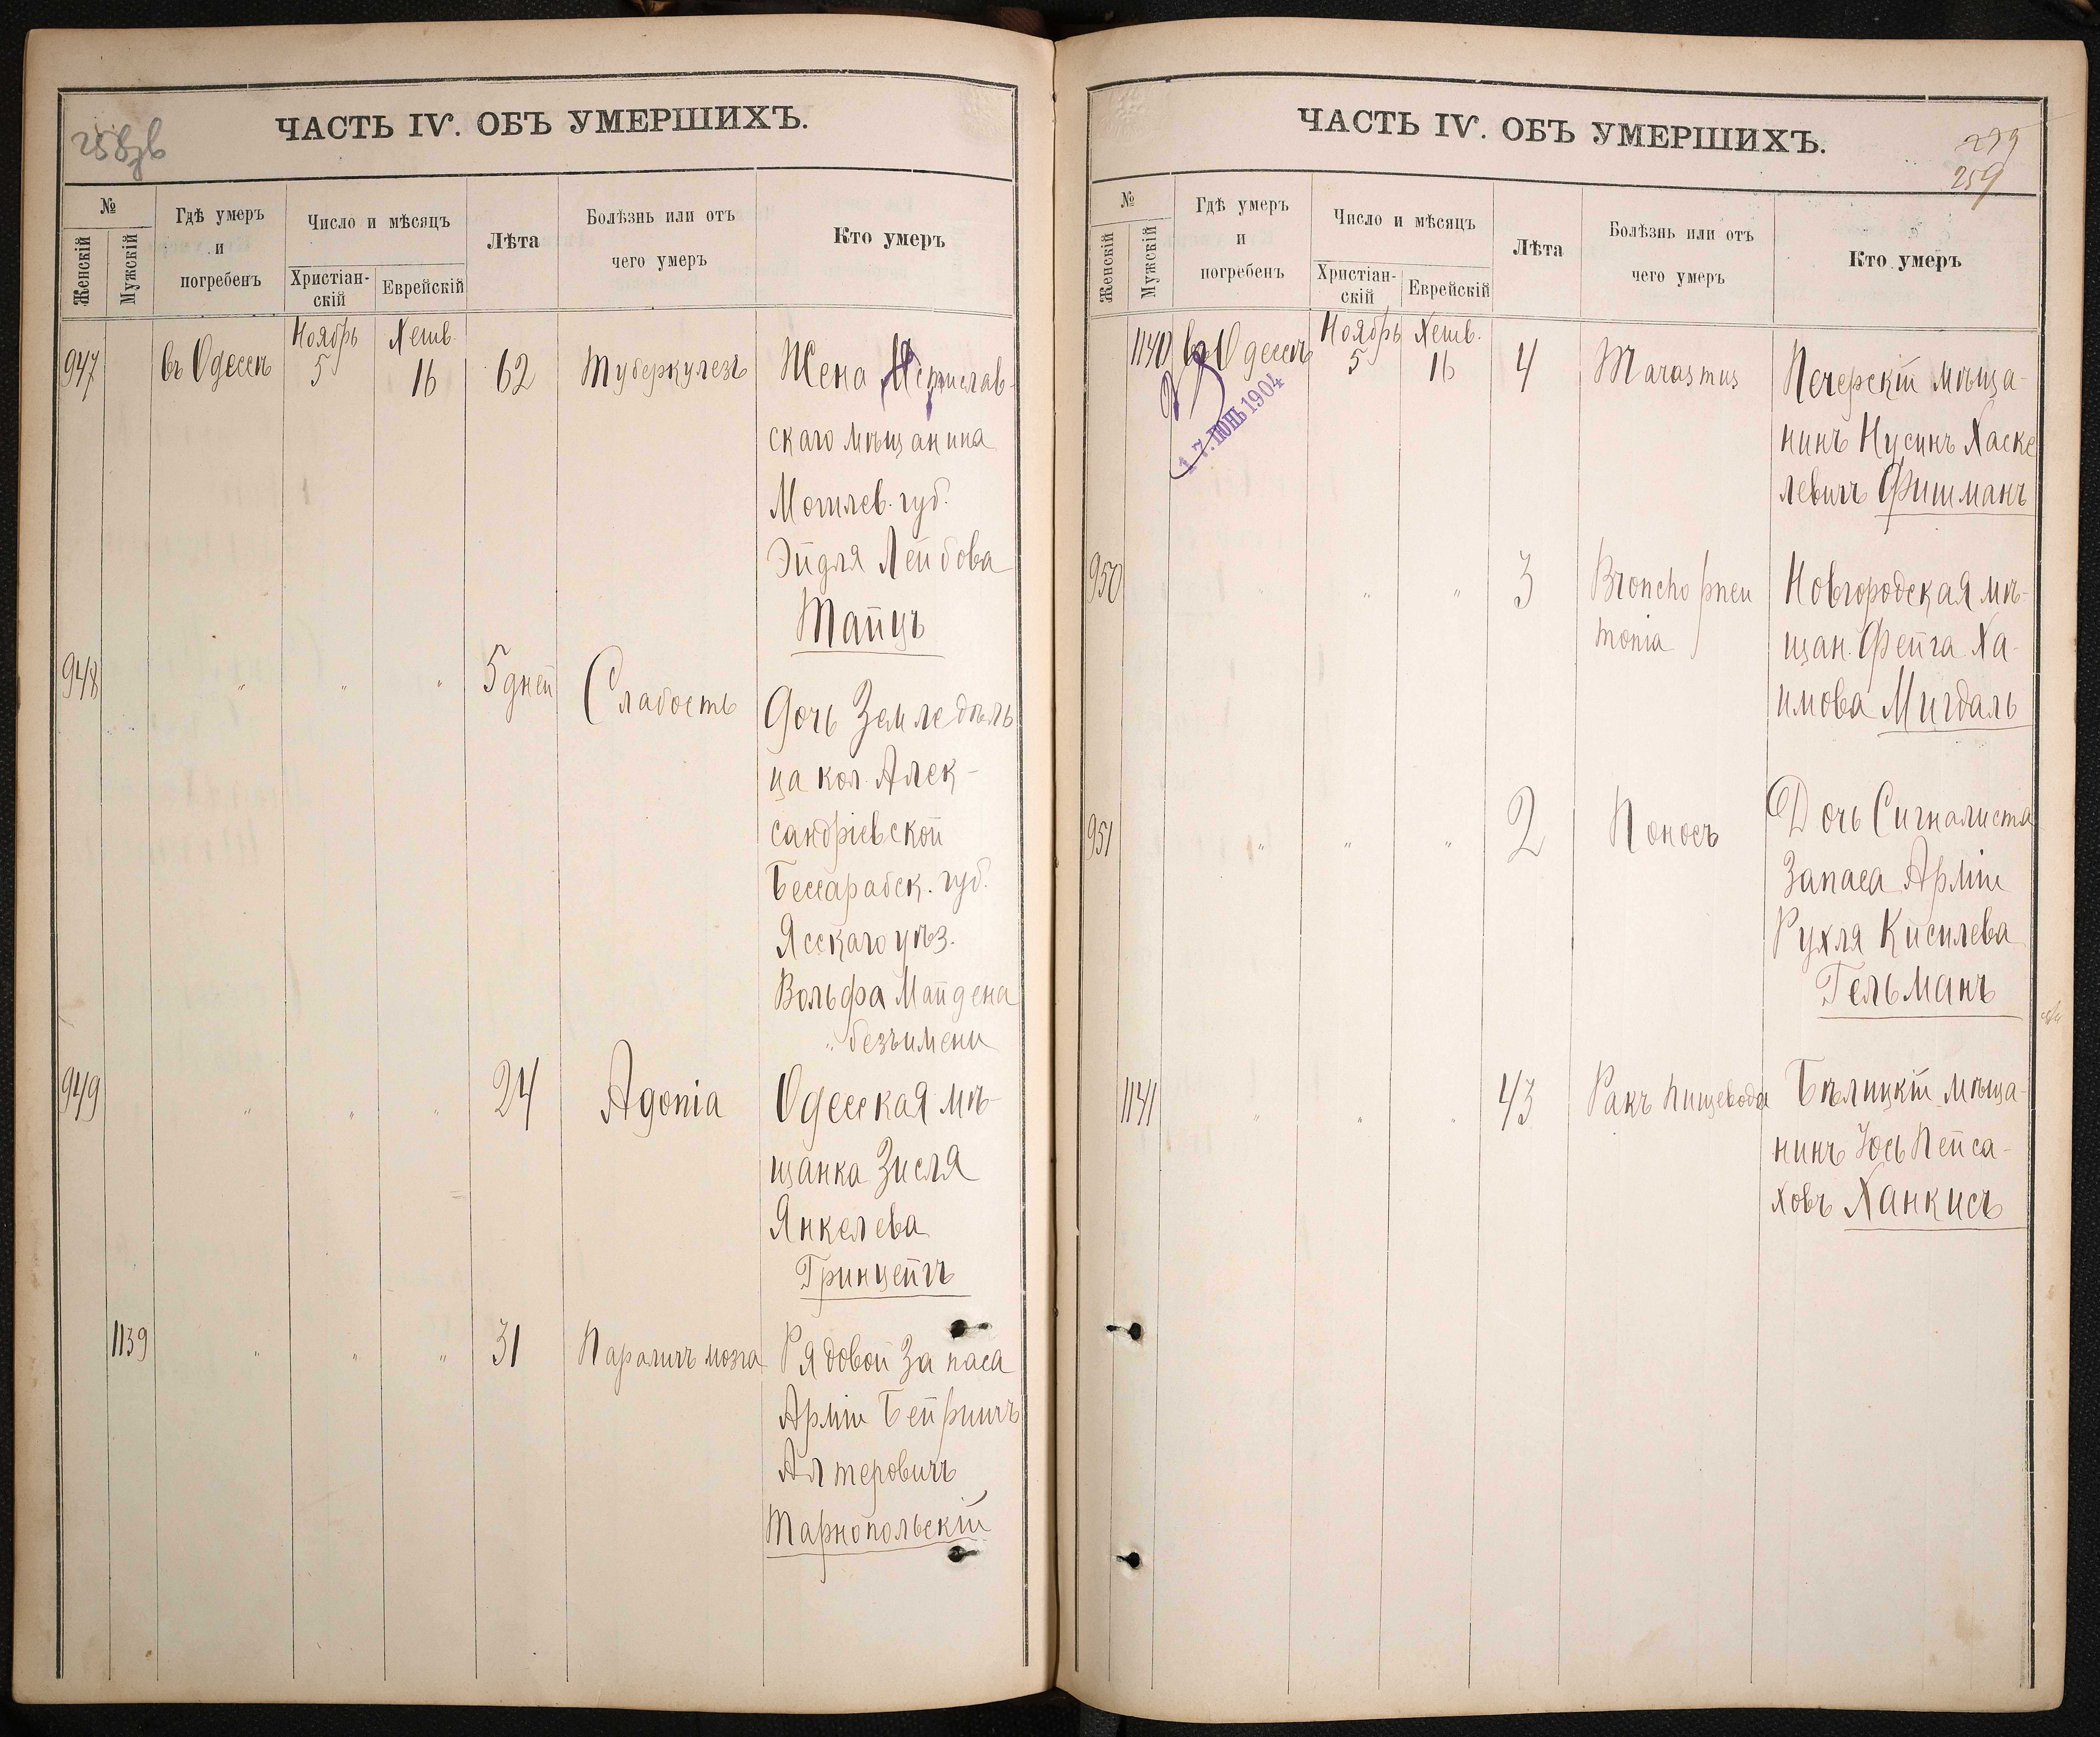 258зв
ЧАСТЬ IV. ОБЪ УМЕРШИХЪ.
№
Женскій
Мужскій
Гдѣ умеръ
и
погребенъ
Число и мѣсяцъ
Христіан-
скій
Еврейскій
Лѣта
Болѣзнь или отъ
чего умеръ
Кто умеръ
947 въ Одессѣ Ноябрь 5 Хешв. 16 62 Туберкулезъ Жена Мстислав-
скаго мѣщанина
Могилев. губ.
Эйдля Лейбова
Тайцъ
948 " " " 5 дней Слабость Дочь Земледѣль
ца кол. Алек-
сандріевской
Бессарабск. губ.
Ясскаго уѣз.
Вольфа Майдена
" безъимени
949 " " " 24 Agonia Одесская мѣ-
щанка Зисля
Янкелева
Гринцейгъ
1139 " " " 31 Параличъ мозга Рядовой Запаса
Арміи Бейришъ
Алтеровичъ
Тарнопольскій
ЧАСТЬ IV. ОБЪ УМЕРШИХЪ.
259
№
Женскій
Мужскій
Гдѣ умеръ
и
погребенъ
Число и мѣсяцъ
Христіан-
скій
Еврейскій
Лѣта
Болѣзнь или отъ
чего умеръ
Кто умеръ
1140 въ Одессѣ Ноябрь 5 Хешв. 16 4 Marasmus Печерскій мѣща-
нинъ Нусинъ Хаске
левичъ Фишманъ
17. ІЮНЬ 1904
950 " " " 3 Broncho pneu
monia
Новгородская мѣ-
щан. Фейга Ха-
имова Мигдаль
951 " " " 2 Поносъ Дочь Сигналиста
Запаса Арміи
Рухля Кисилева
Гельманъ
1141 " " " 43 Ракъ пищевода Бѣлицкій мѣща-
нинъ Юсь Пейса-
ховъ Ханкисъ